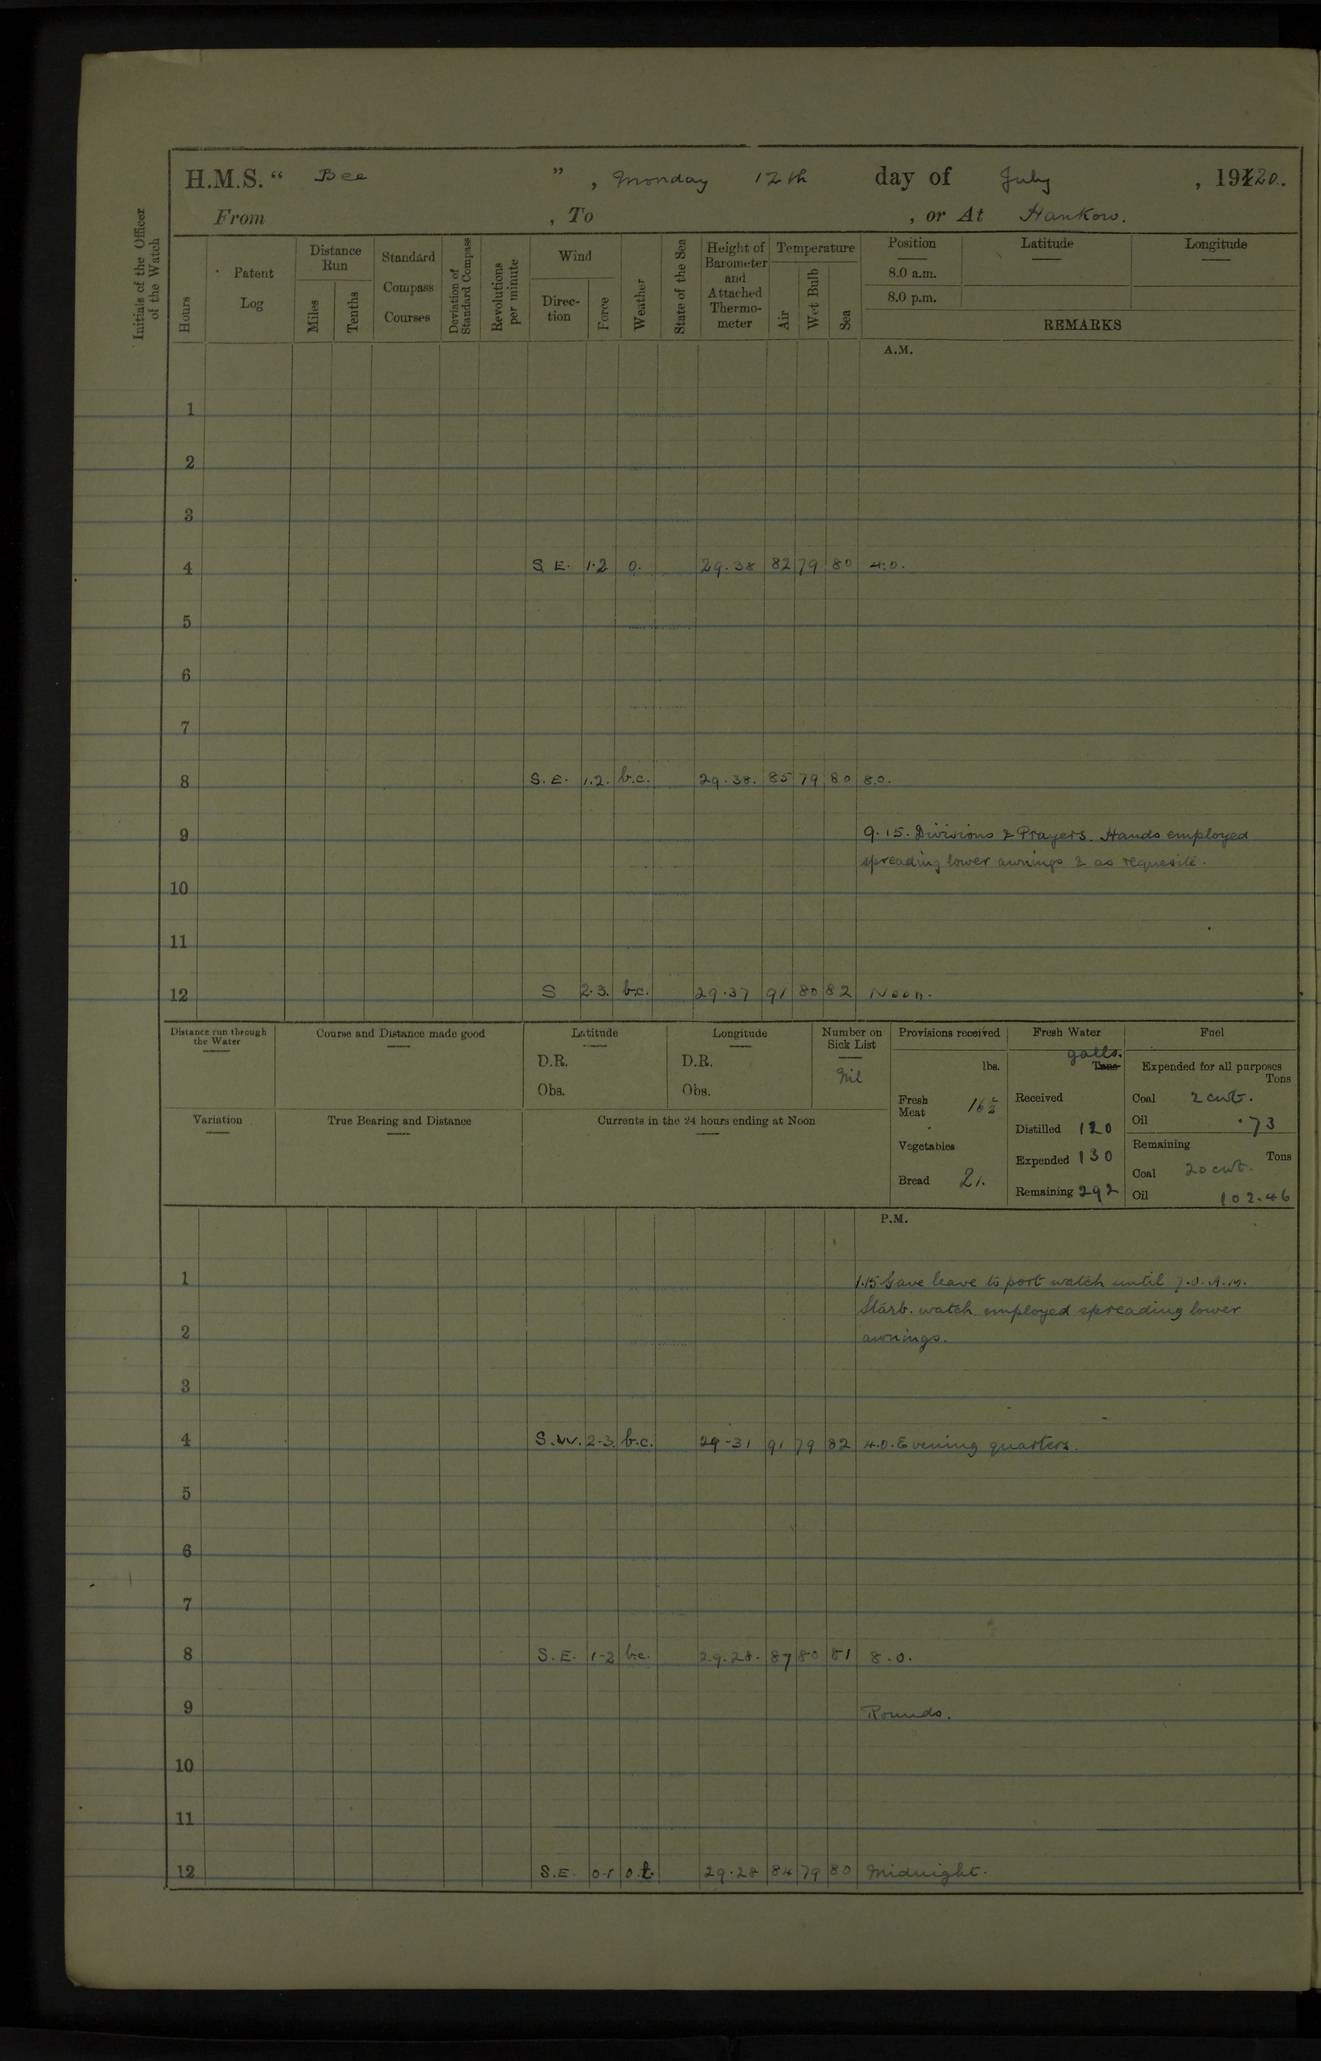 H.M.S. “ Bee ” , Monday 12th day of July , 19120.
From , To , or At Hankow.
Initials of the Officer of the Watch
Hours
Patent Log
Distance Run
Miles
Tenths
Standard Compass Courses
Deviation of Standard Compass
Revolutions per minute
Wind
Direc-tion
Force
Weather
State of the Sea
Height of Barometer and Attached Thermo-meter
Temperature
Air
Wet Bulb
Sea
Position
8.0 a.m.
8.0 p.m.
Latitude
Longitude
REMARKS
A.M.
1
2
3
4 S E. 1.2 o. 29.38 82 79 80 4.0.
5
6
7
8 S.E. 1.2. b.c. 29.38. 85 79 80 8.0.
9 9.15. Divisions & Prayers. Hands employed
spreading lower awnings & as requisite.
10
11
12 S 2.3. b.c. 29.37 91 80 82 Noon.
Distance run through the Water
Course and Distance made good
Latitude
D.R.
Obs.
Longitude
D.R.
Obs.
Number on Sick List
Nil
Variation
True Bearing and Distance
Currents in the 24 hours ending at Noon
Provisions received
lbs.
Fresh Meat 16
Vegetables
Bread 21.
Fresh Water
galls.
Tons
Received
Distilled 120
Expended 130
Remaining 292
Fuel
Expended for all purposes
Tons
Coal 2 cwt.
Oil .73
Remaining
Tons
Coal 20 cwt.
Oil 102.46
P.M.
1 1.15 Gave leave to port watch until 7.0.A.M.
Starb. watch employed spreading lower
2 awnings.
3
4 S.W. 2-3. b.c. 29-31 91 79 82 4.0. Evening quarters.
5
6
7
8 S.E. 1-2 b.c. 29.28. 87 80 81 8.0.
9 Rounds.
10
11
12 S.E. 0.1 o.t. 29.28 84 79 80 Midnight.